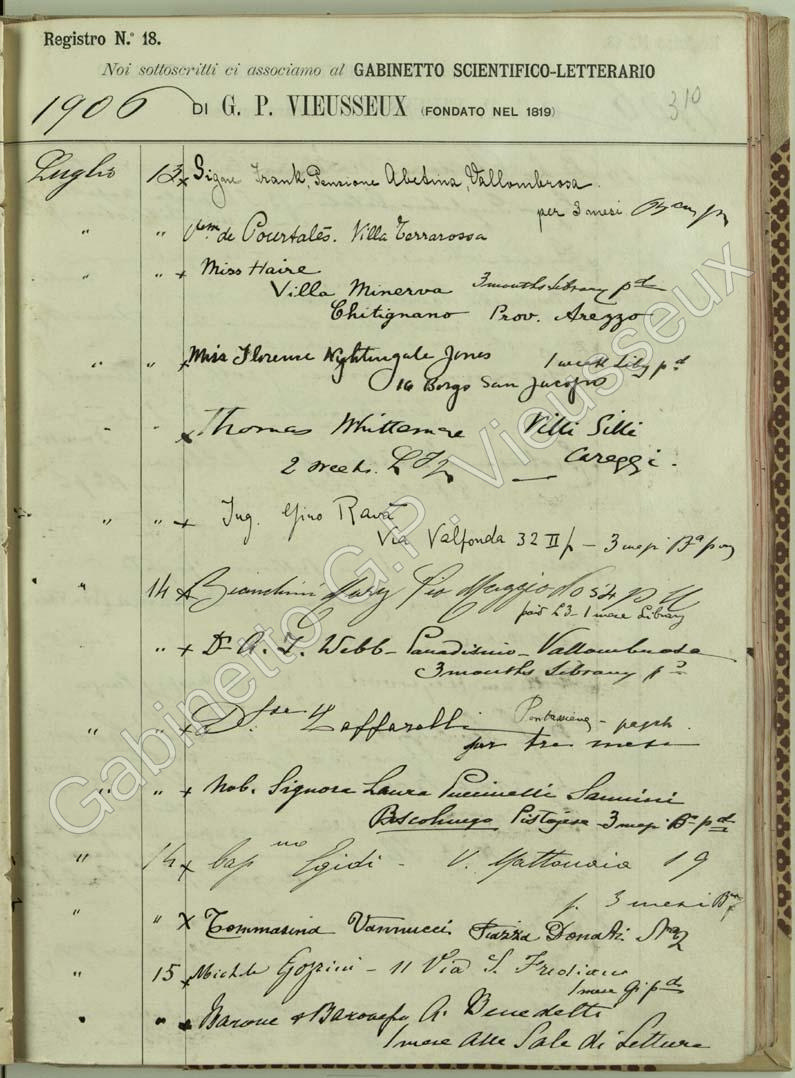 Registro N.º 18.
310
Noi sottoscritti ci associamo al GABINETTO SCIENTIFICO-LETTERARIO
1906 DI G. P. VIEUSSEUX (FONDATO NEL 1819)
Luglio 13 x Sigre Frank, Pensione Abetina, Vallombrosa.
per 3 mesi
" " de Pourtalès. Villa Terrarossa
" " x Miss Haire
Villa Minerva 3 months Library pd
Chitignano Prov. Arezzo
" " x Miss Florence Nightingale Jones 1 week Liby pd
16 Borgo San Jacopo
" " x Thomas Whittemore Villi Silli
2 weeks. Careggi.
" " x Ing. Gino Ravà
Via Valfonda 32 II p - 3 mesi
" 14 x Bianchini Mary No 54
paid L3 - 1 mese Library
" x Dr A. T. Webb - Paradisino - Vallombrosa
3 months Library pd
" " x Zaffarelli Pontassieve
per tre mesi
" " x Nob. Signora Laura Puccinelli Sannini
Pistojese - 3 mesi
" 14 x Capno Egidi - V. Mattonaia 19
p. 3 mesi
" " x Tommasina Vannucci Piazza Donati
" 15 x Michele - 11 Via S. Frediano
1 mese
" " x Barone & Baronessa A. Benedetti
1 mese alle Sale di Lettura
Gabinetto G.P. Vieusseux